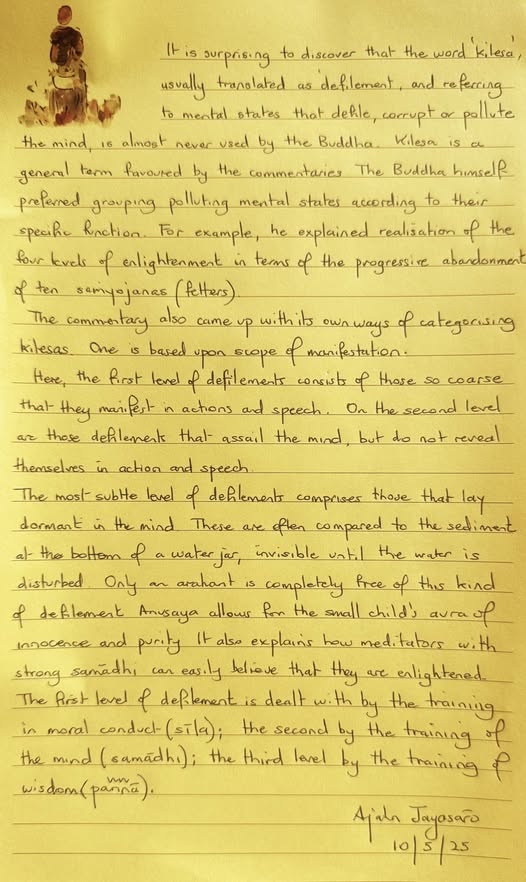 It is surprising to discover that the word 'kilesa',
usually translated as 'defilement', and referring
to mental states that defile, corrupt or pollute
the mind, is almost never used by the Buddha. Kilesa is a
general term favoured by the commentaries The Buddha himself
preferred grouping polluting mental states according to their
specific function. For example, he explained realisation of the
four levels of enlightenment in terms of the progressive abandonment
of ten saṃyojanas (fetters).
The commentary also came up with its own ways of categorising
kilesas. One is based upon scope of manifestation.
Here, the first level of defilements consists of those so coarse
that they manifest in actions and speech. On the second level
are those defilements that assail the mind, but do not reveal
themselves in action and speech.
The most subtle level of defilements comprises those that lay
dormant in the mind. These are often compared to the sediment
at the bottom of a water jar, invisible until the water is
disturbed. Only an arahant is completely free of this kind
of defilement Anusaya allows for the small child's aura of
innocence and purity It also explains how meditators with
strong samādhi can easily believe that they are enlightened.
The first level of defilement is dealt with by the training
in moral conduct (sīla); the second by the training of
the mind (samādhi); the third level by the training of
wisdom (paññā).
Ajahn Jayasāro
10/5/25